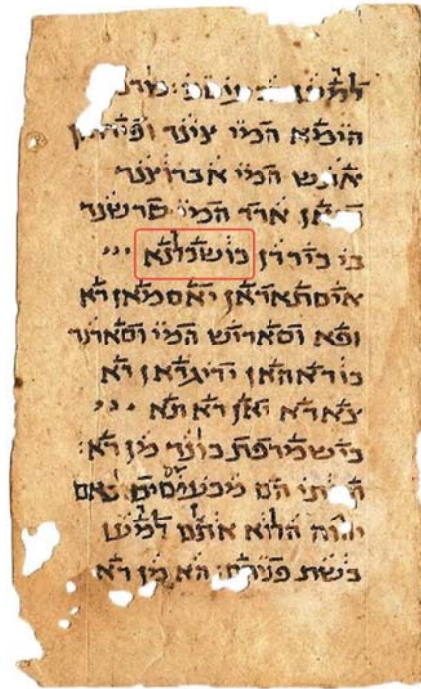 למען
המי צינד
המי אברוצנד
ארד המי סרשנד
בי כירדן כושכלנא
איסתאראן יאסמאן רא
ופא וסאריש המי וסארנד
כודאהאן ידיגראן רא
צאדא יאן ראתא
כישמרפת כונד מן רא:
הם מכעסים נאם
יהוה הלוא אתם למען
בשת פניהם: הא מן רא